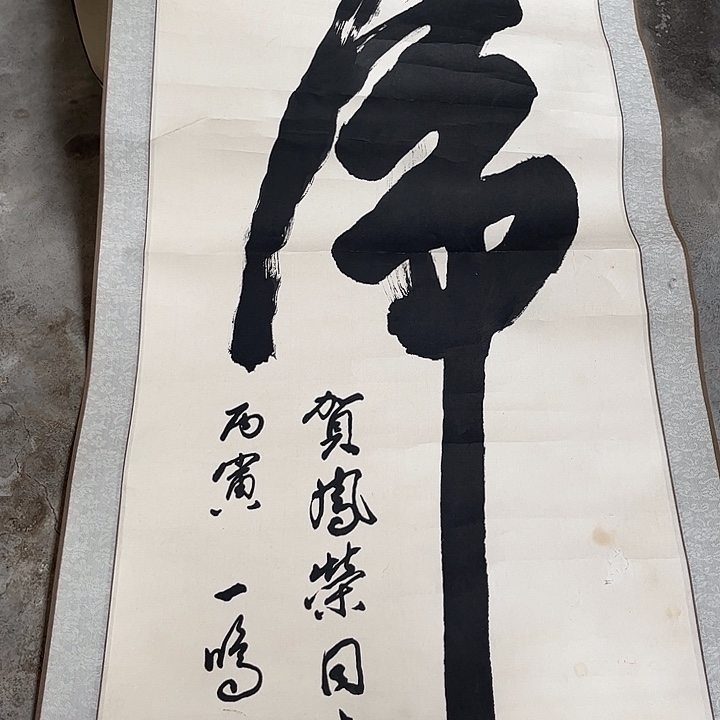 虎
賀鳳榮同
丙寅 一鳴